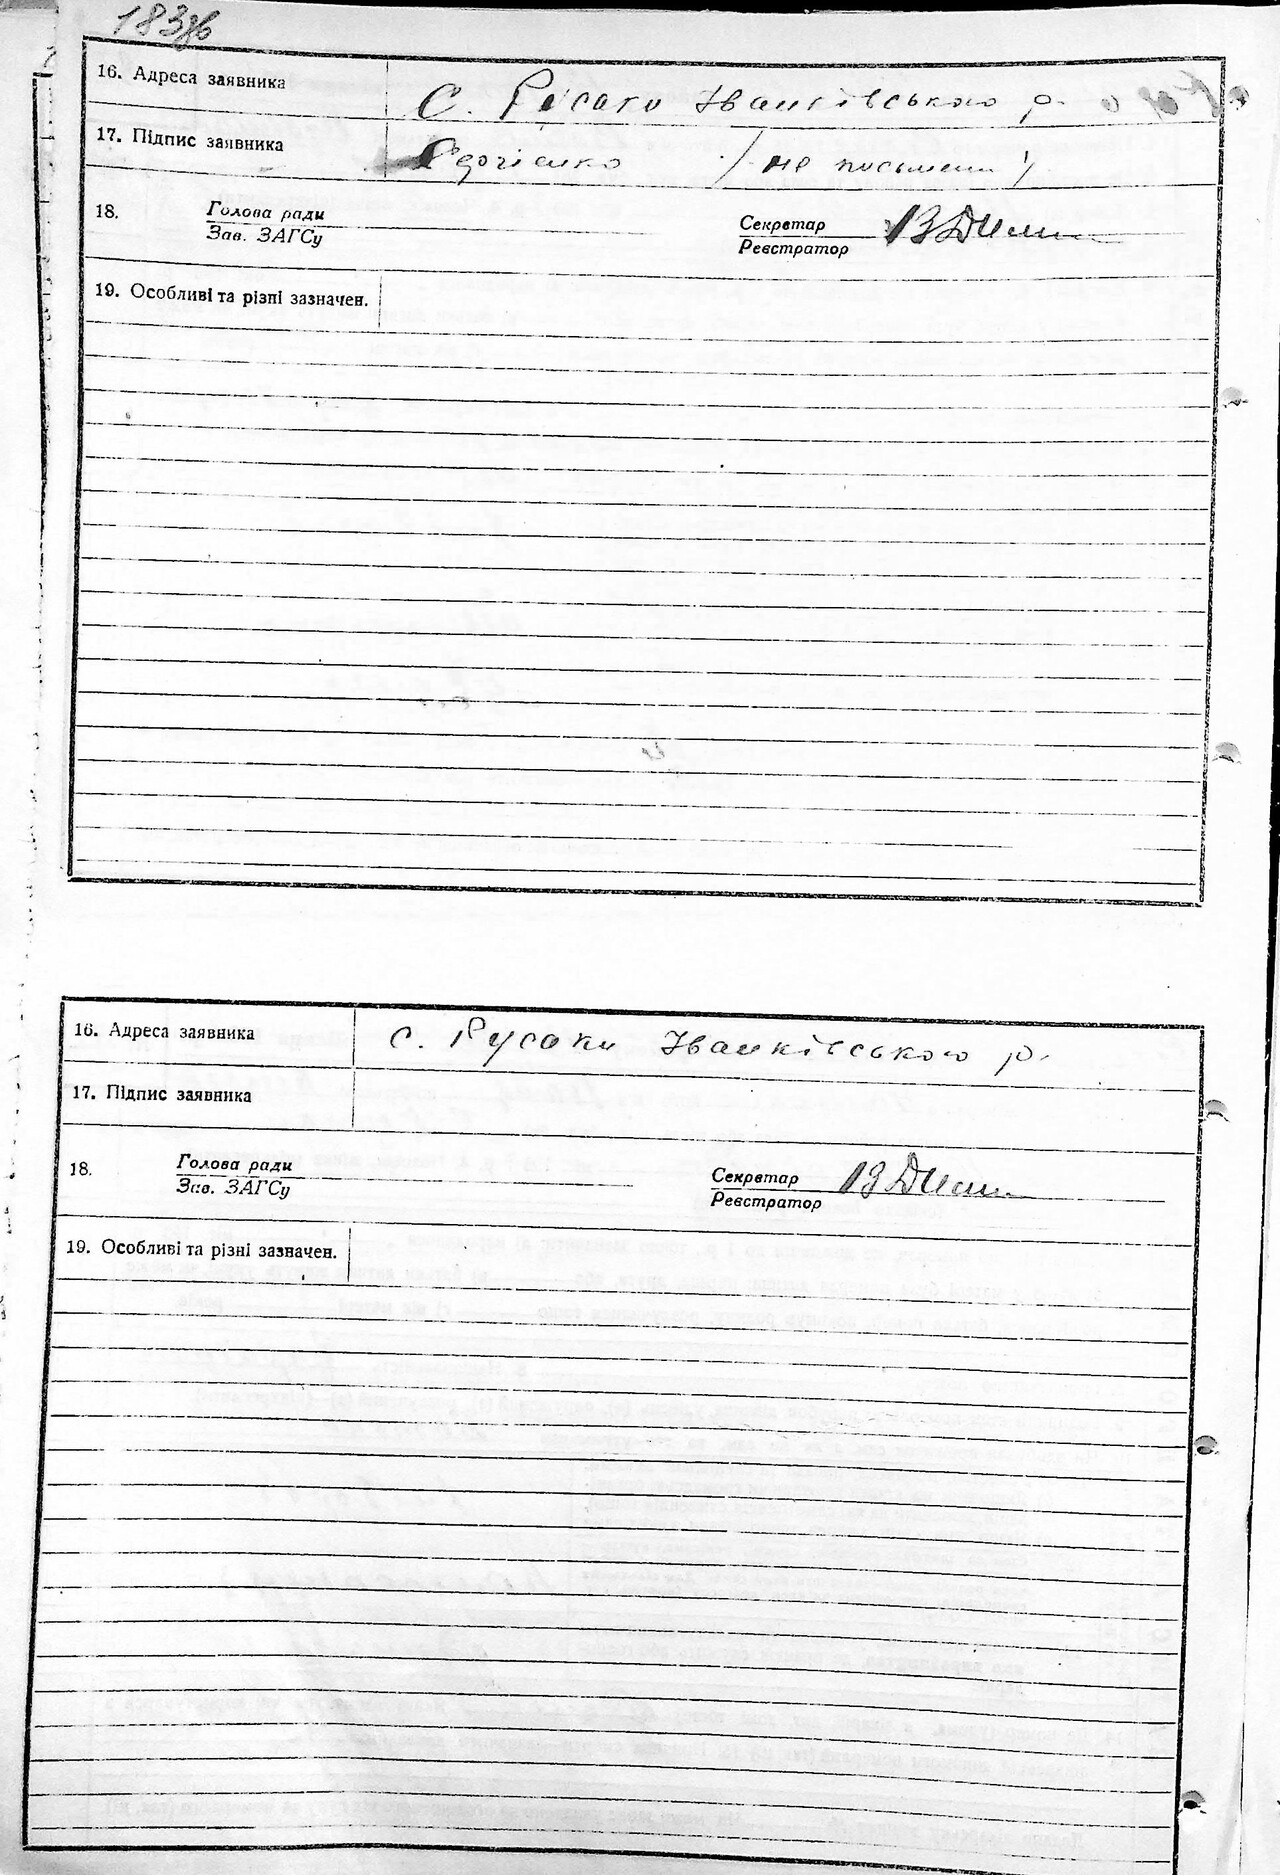 183зв
16. Адреса заявника С. Русаки Іванківського р.
17. Підпис заявника / не письмений /
18. Голова ради
Зав. ЗАГСу
Секретар
Реєстратор
19. Особливі та різні зазначен.
16. Адреса заявника с. Русаки Іванківського р.
17. Підпис заявника
18. Голова ради
Зав. ЗАГСу
Секретар
Реєстратор
19. Особливі та різні зазначен.